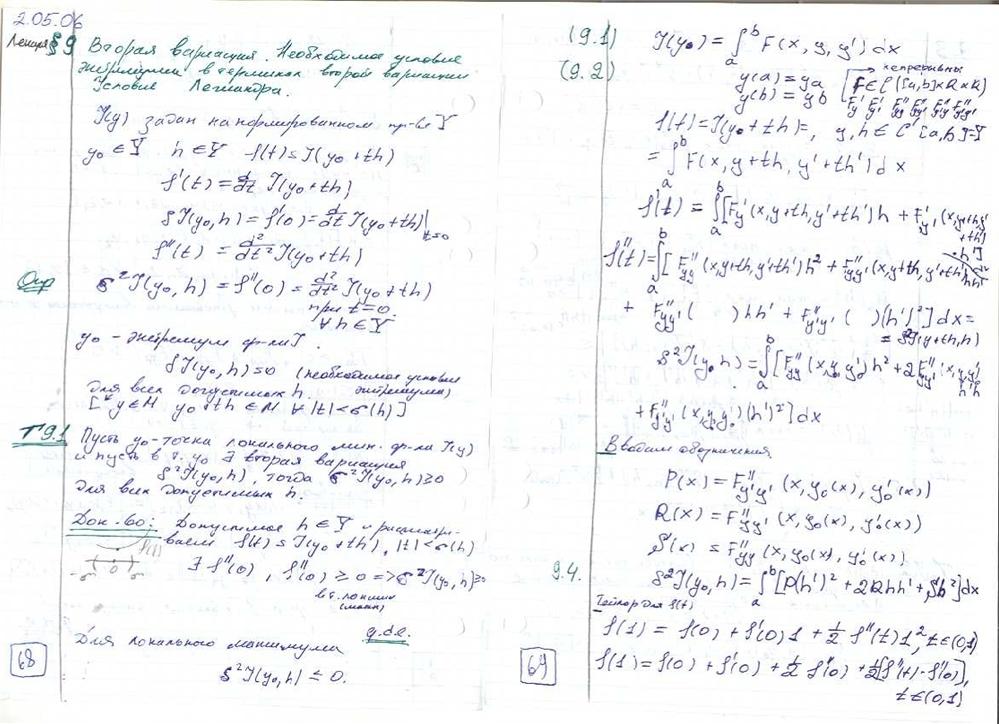 2.05.06
Лекция §9 Вторая вариация. Необходимое условие
экстремума в терминах второй вариации
Условие Лежандра.
J(y) задан на нормированном пр-ве Y
y₀ ∈ Y h ∈ Y f(t) = J(y₀ + th)
f'(t) = d/dt J(y₀ + th)
δJ(y₀, h) = f'(0) = d/dt J(y₀ + th)|t=0
f''(t) = d²/dt² J(y₀ + th)
Опр δ²J(y₀, h) = f''(0) = d²/dt² J(y₀ + th)
при t = 0.
∀ h ∈ Y
y₀ - экстремум ф-ла J.
δJ(y₀, h) = 0 (необходимое условие
экстремума)
для всех допустимых h.
[y ∈ M y₀ + th ∈ M ∀ |t| < σ(h)]
Т 9.1 Пусть y₀ - точка локального мин. ф-ла J(y)
и пусть в т. y₀ ∃ вторая вариация
δ²J(y₀, h), тогда δ²J(y₀, h) ≥ 0
для всех допустимых h.
Док-во: Допустимое h ∈ Y и рассматри-
ваем f(t) = J(y₀ + th), |t| < σ(h)
∃ f''(0), f''(0) ≥ 0 => δ²J(y₀, h) ≥ 0
в т. локальн
(мин)
q.d.e.
Для локального максимума
δ²J(y₀, h) ≤ 0.
68
(9.1) J(y₀) = ∫ₐᵇ F(x, y, y') dx
(9.2) y(a) = ya
y(b) = yb
непрерывны
F ∈ C([a,b]×R×R)
F'y F'y' F''yy F''yy' F''y'y'
f(t) = J(y₀ + th) =, y, h ∈ C'[a,b] = Y
= ∫ₐᵇ F(x, y + th, y' + th') dx
f'(t) = ∫ₐᵇ [F'y (x, y+th, y'+th') h + F'y' (x, y+th, y'+th') h']
f''(t) = ∫ₐᵇ [F''yy (x, y+th, y'+th') h² + F''yy' (x, y+th, y'+th') hh'
+ F''yy' ( ) hh' + F''y'y' ( ) (h')²] dx =
= δ²J(y+th, h)
δ²J(y₀, h) = ∫ₐᵇ [F''yy (x, y₀, y₀') h² + 2F''yy' (x, y, y') h'h
+ F''y'y' (x, y₀, y₀') (h')²] dx
Вводим обозначения
P(x) = F''y'y' (x, y₀(x), y₀'(x))
Q(x) = F''yy' (x, y₀(x), y₀'(x))
S(x) = F''yy (x, y₀(x), y₀'(x))
9.4. δ²J(y₀, h) = ∫ₐᵇ [P(h')² + 2Qhh' + Sh²] dx
Тейлор для f(t)
f(1) = f(0) + f'(0)1 + ½ f''(t) 1², t ∈ (0,1)
f(1) = f(0) + f'(0) + ½ f''(0) + ½[f''(t) - f''(0)],
t ∈ (0,1)
69